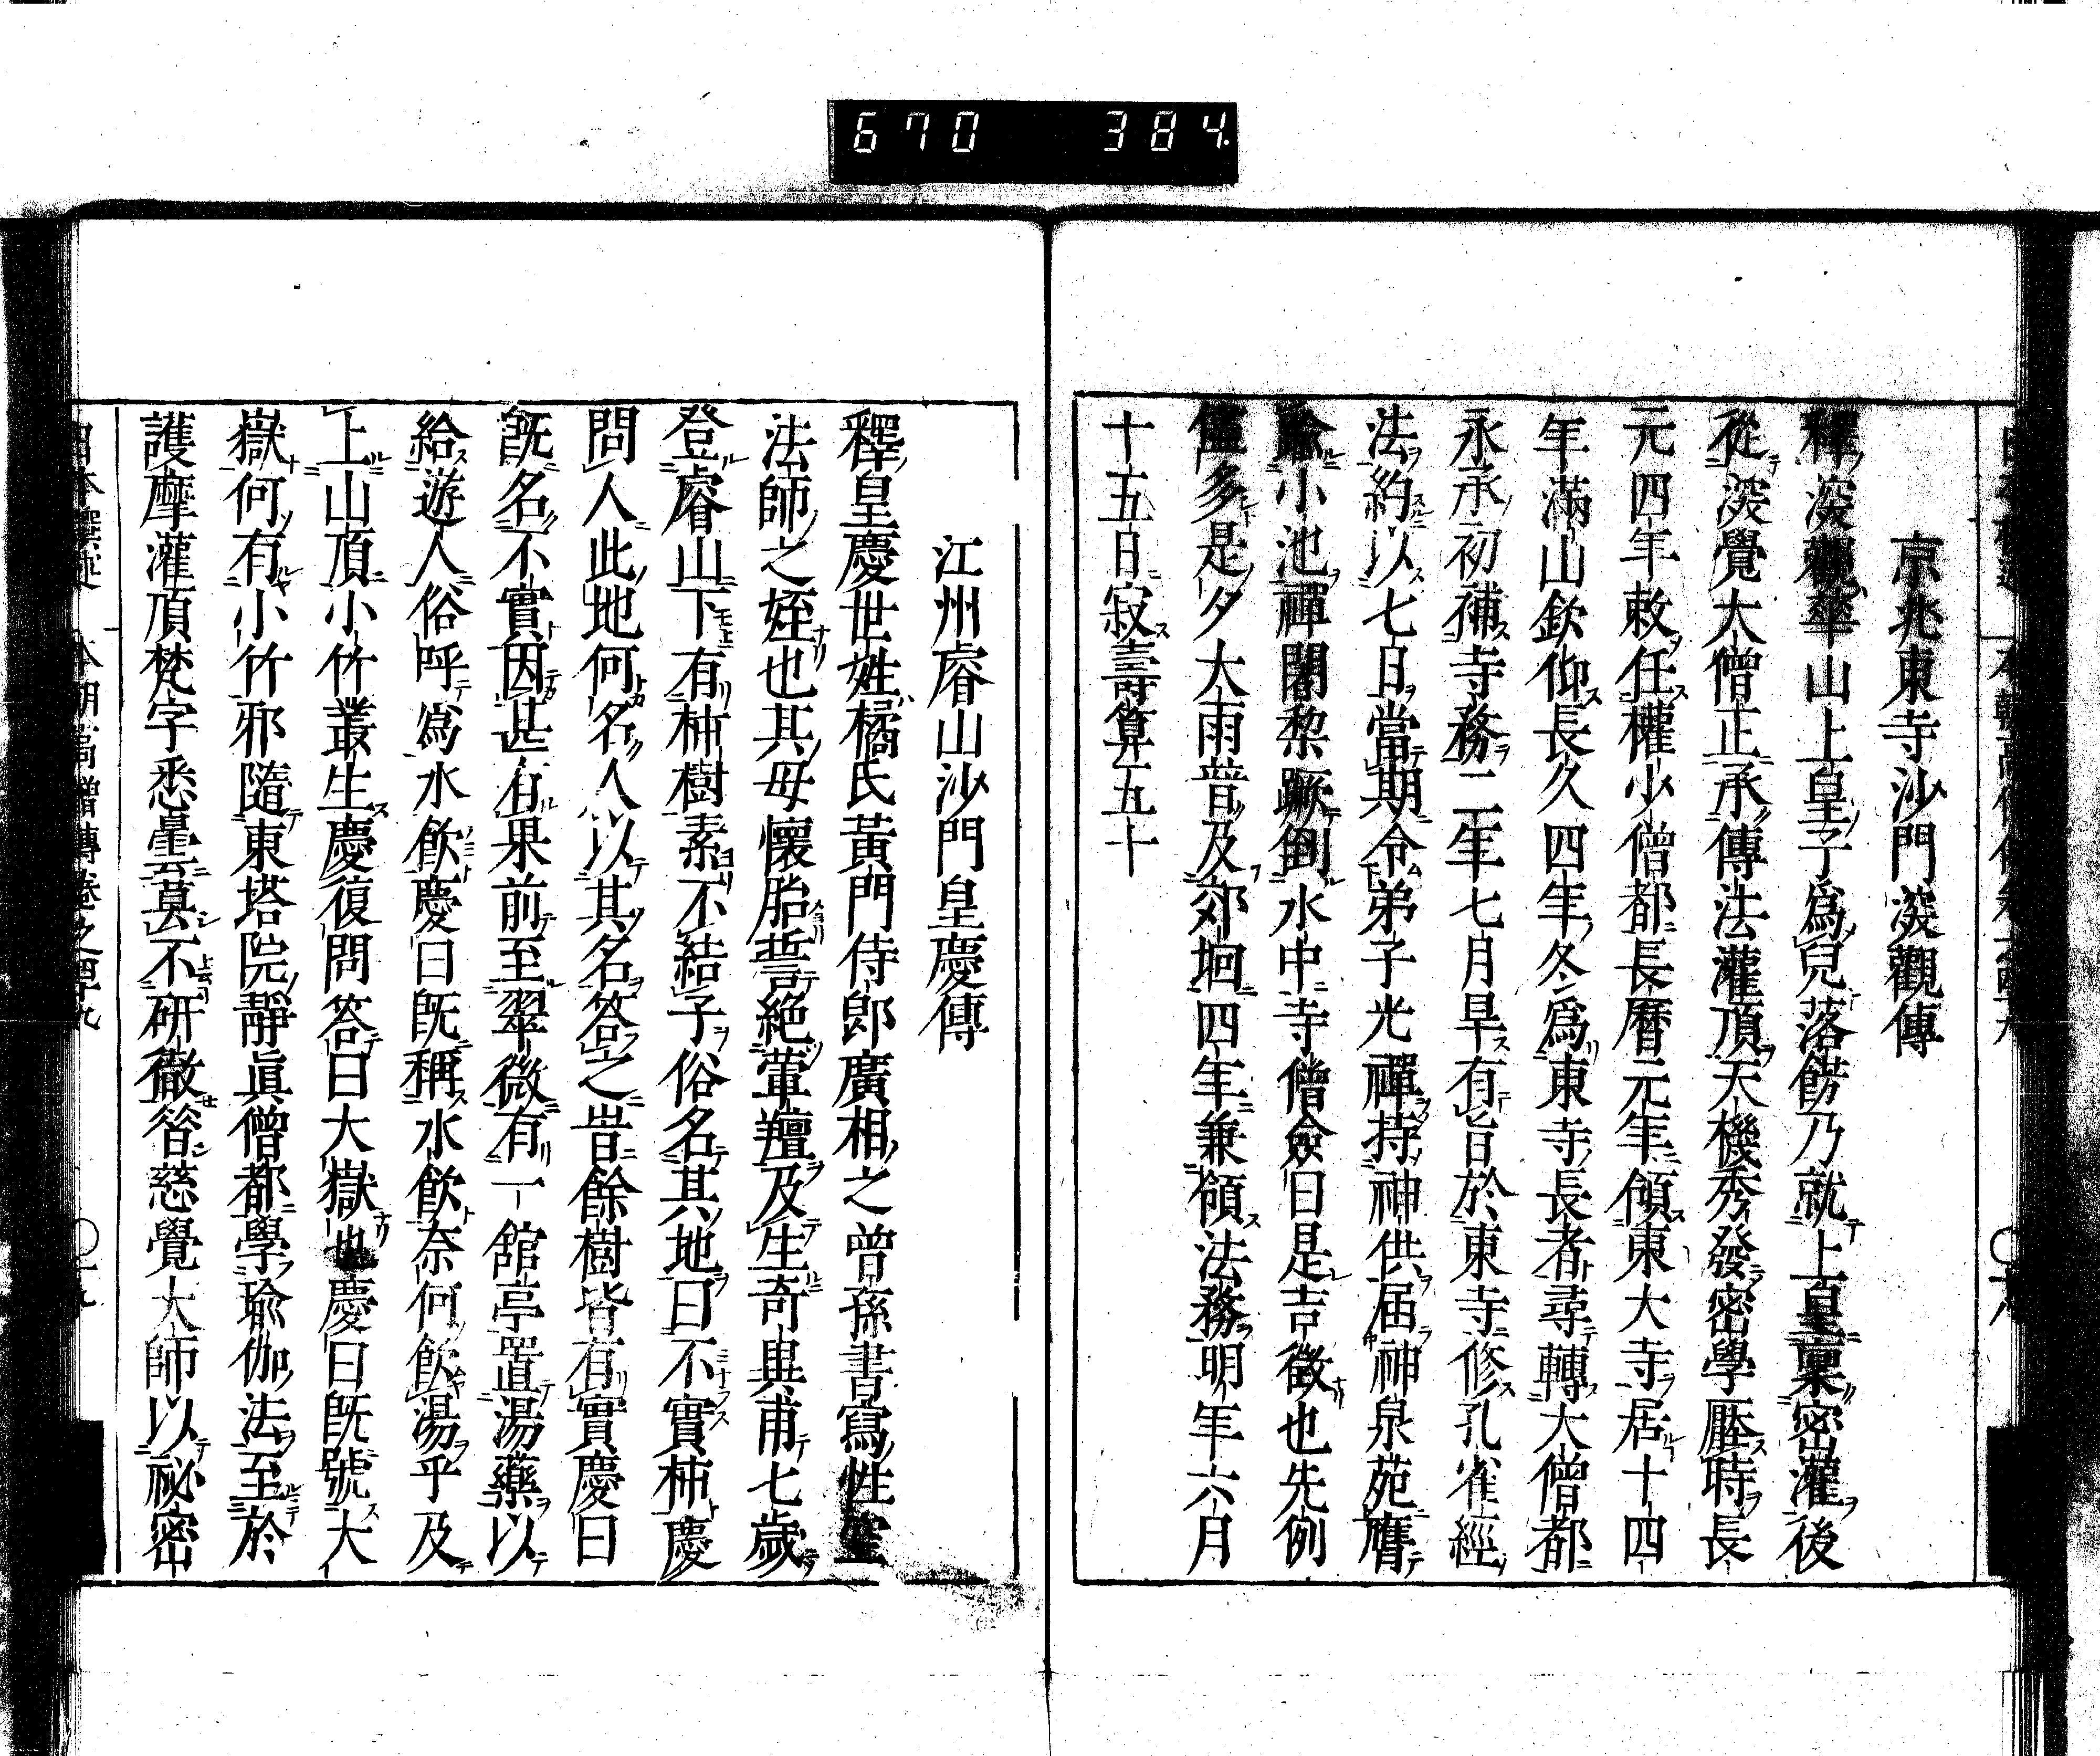 670 384
京兆東寺沙門深觀傳
釋深觀華山上皇子爲兒落餝乃就上皇稟密灌後
從深覺大僧正承傳法灌頂天機秀發密學壓時長
元四年敕任權少僧都長曆元年領東大寺居十四
年滿山欽仰長久四年冬爲東寺長者尋轉大僧都
永承初補寺務二年七月旱有旨於東寺修孔雀經
法約以七日當期令弟子光禪持神供届神泉苑臍
踰小池禪闍梨蹶倒水中寺僧僉曰是吉徵也先例
多是夕大雨普及郊坰四年兼領法務明年六月
十五日寂壽算五十
江州睿山沙門皇慶傳
釋皇慶世姓橘氏黃門侍郎廣相之曾孫書寫性空
法師之姪也其母懷胎誓絕葷羶及生奇異甫七歲
登睿山下有柿樹素不結子俗名其地曰不實柿慶
問人此地何名人以其名答之旹餘樹皆有實慶曰
旣名不實因甚有果前至翠微有一館亭置湯藥以
給遊人俗呼爲水飮慶曰旣稱水飮奈何飮湯乎及
上山頂小竹叢生慶復問答曰大嶽也慶曰旣號大
嶽何有小竹邪隨東塔院靜眞僧都學瑜伽法至於
護摩灌頂梵字悉曇莫不研徹咨慈覺大師以祕密
本朝高僧傳卷之四十九